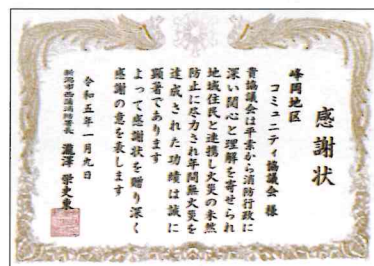 感謝状
峰岡地区
コミュニティ協議会 様
貴協議会は平素から消防行政に
深い関心と理解を寄せられ
地域住民と連携し火災の未然
防止に尽力され年間無火災を
達成された功績は誠に
顕著であります
よって感謝状を贈り深く
感謝の意を表します
令和五年一月九日
新潟市西蒲消防署長 瀧澤 学史